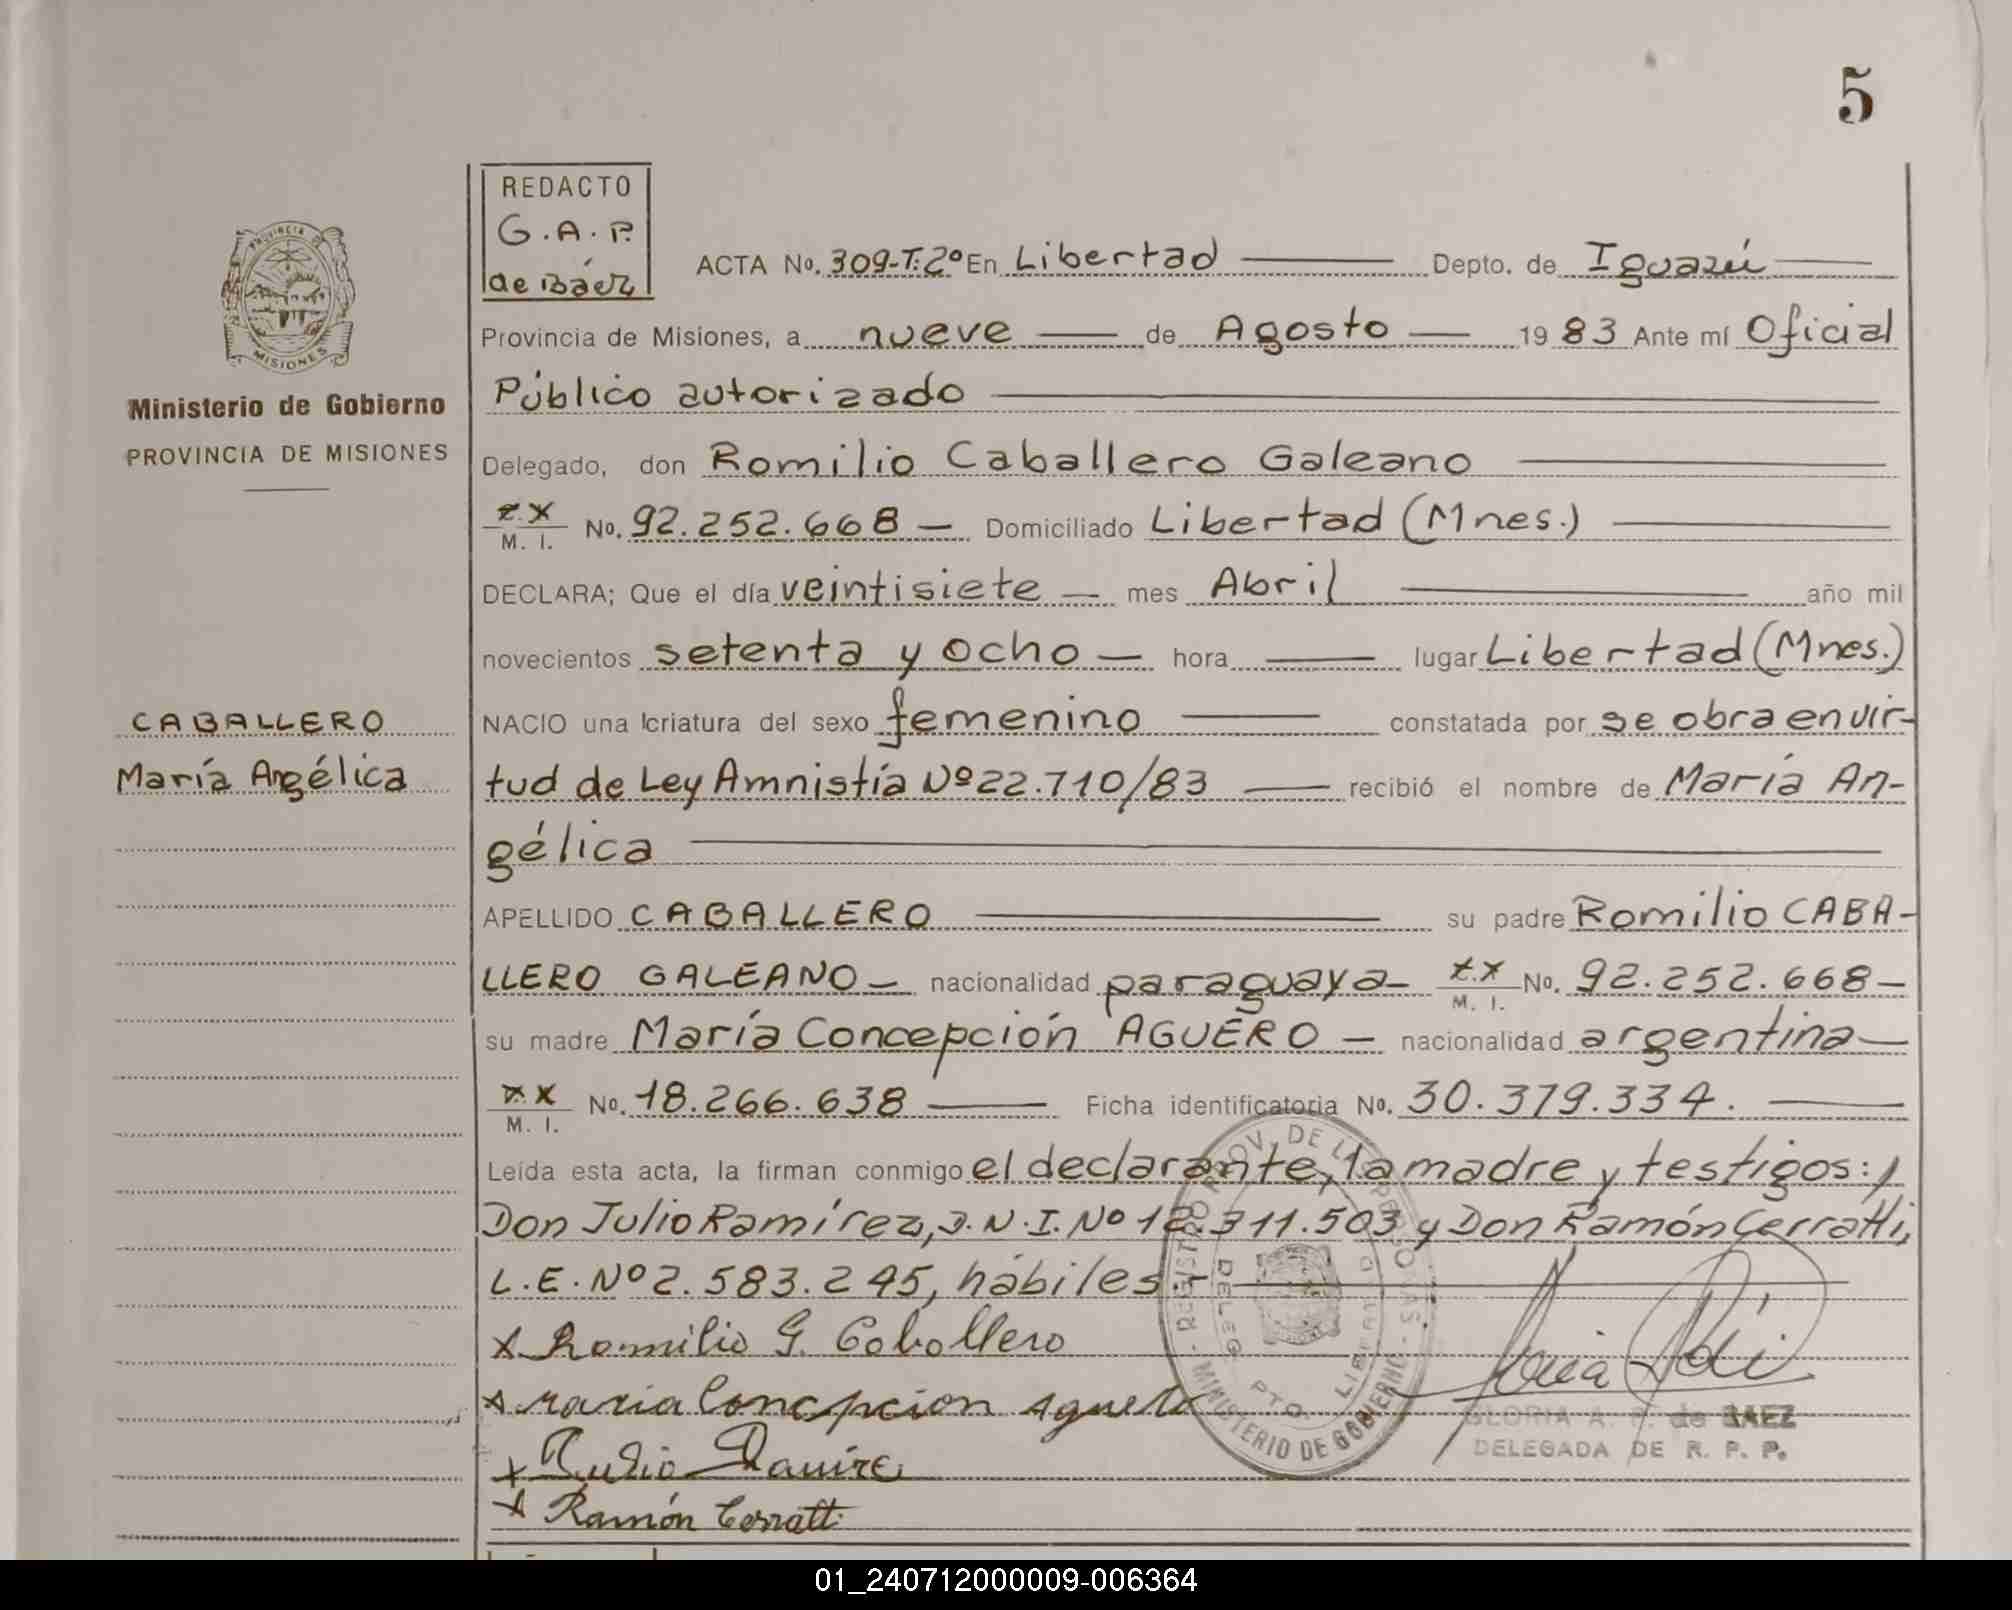 5
REDACTO
G.A.P.
de Báez
PROVINCIA DE
MISIONES
Ministerio de Gobierno
PROVINCIA DE MISIONES
ACTA No. 309-T:2º En Libertad Depto. de Iguazú
Provincia de Misiones, a nueve de Agosto 1983 Ante mí Oficial
Público autorizado
Delegado, don Romilio Caballero Galeano
M. I. No. 92.252.668 — Domiciliado Libertad (Mnes.)
DECLARA; Que el día veintisiete — mes Abril año mil
novecientos setenta y ocho — hora — lugar Libertad (Mnes.)
CABALLERO
María Angélica
NACIO una criatura del sexo femenino — constatada por se obra en vir-
tud de Ley Amnistía Nº 22.710/83 — recibió el nombre de María An-
gélica
APELLIDO CABALLERO — su padre Romilio CABA-
LLERO GALEANO — nacionalidad paraguaya — M. I. No. 92.252.668 —
su madre María Concepción AGUERO — nacionalidad argentina —
M. I. No. 18.266.638 — Ficha identificatoria No. 30.379.334. —
Leída esta acta, la firman conmigo el declarante, la madre y testigos:
Don Julio Ramírez, D.N.I. Nº 12.311.503 y Don Ramón Cerratti,
L.E. Nº 2.583.245, hábiles.
x Romilio G. Caballero
x Maria Concepcion Aguero
x Julio Ramire
x Ramón Cerratti
REGISTRO PROV. DE LAS PERSONAS - MINISTERIO DE GOBIERNO -
DELEG. PTO. LIBERTAD
GLORIA A. P. de BAEZ
DELEGADA DE R. P. P.
01_240712000009-006364